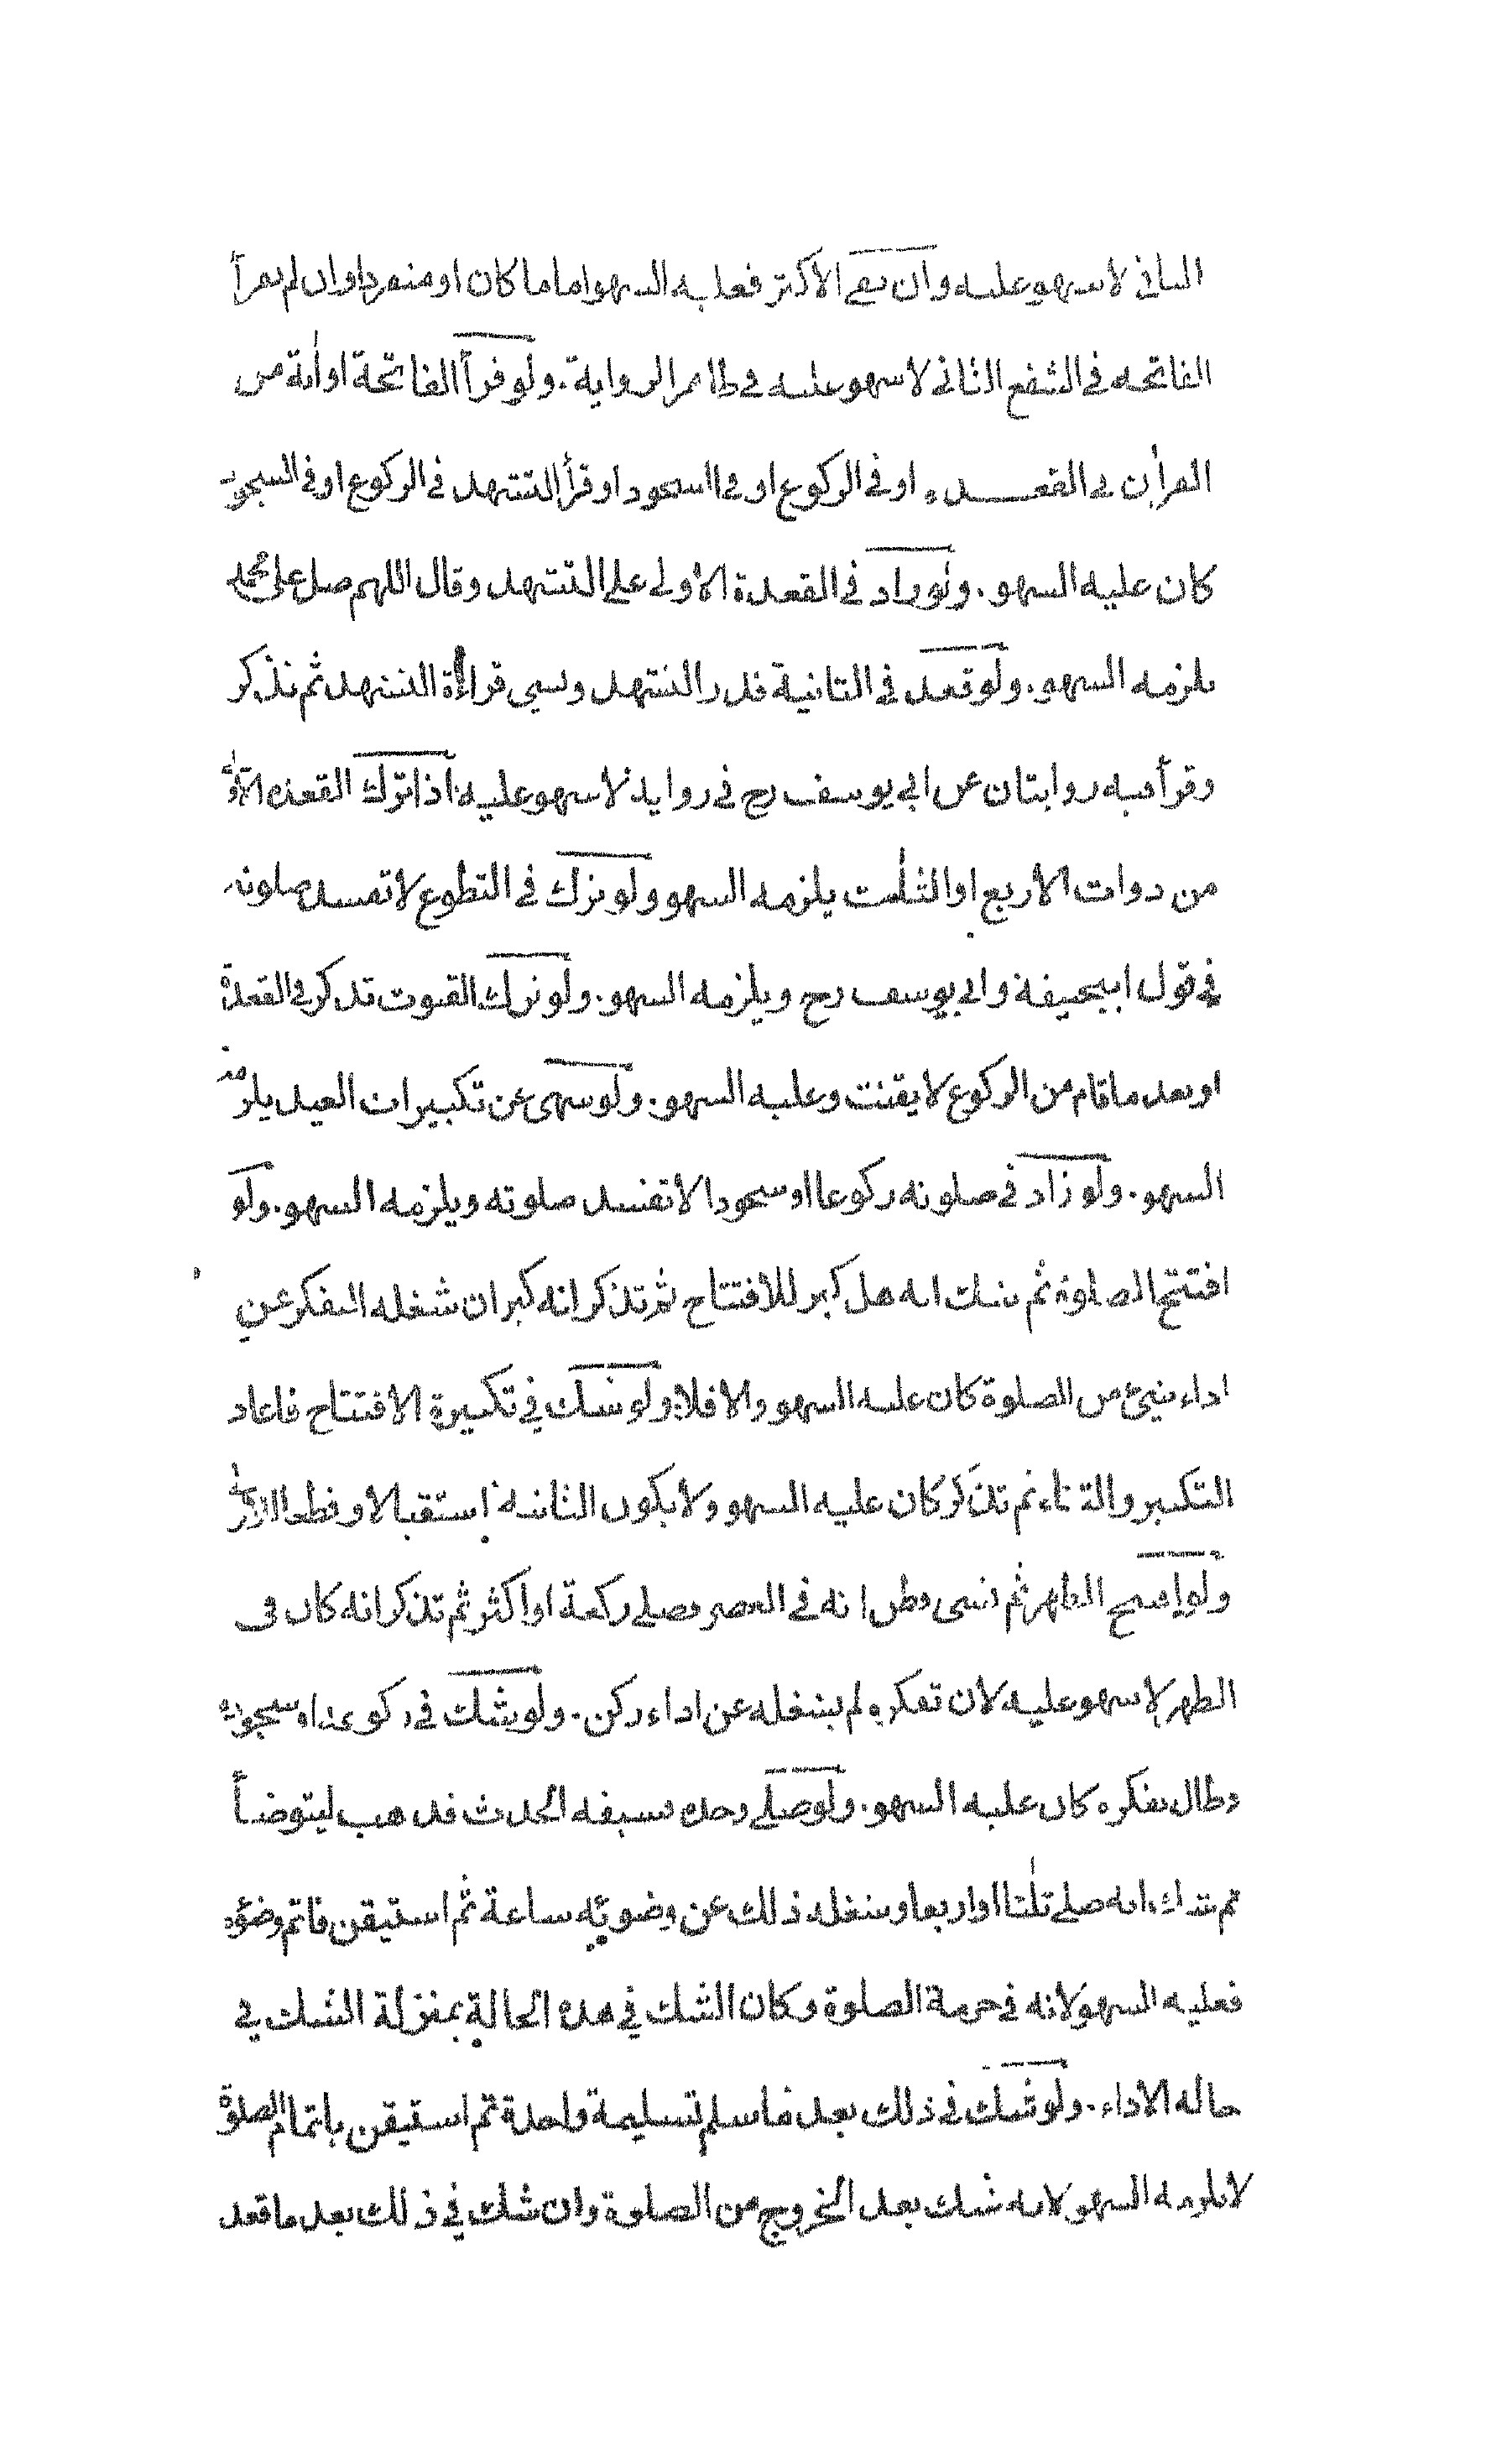 الثانى لا سهو عليه وان بقى الاكثر فعليه السهو اماما كان او منفردا وان لم يقرأ
الفاتحه فى الشفع الثانى لا سهو عليه فى ظاهر الرواية. ولو قرأ الفاتحة او اٰية من
القراٰن فى القعدة او فى الركوع او فى السجود او قرأ التشهد فى الركوع او فى السجود
كان عليه السهو. ولو زاد فى القعدة الاولى على التشهد وقال اللهم صل على محمد
يلزمه السهو. ولو قعد فى الثانية قدر التشهد ونسى قراءة التشهد ثم تذكر
وقرأ فيه روايتان عن ابى يوسف رح فى رواية لا سهو عليه. اذا ترك القعدة الاولى
من ذوات الاربع او الثلٰث يلزمه السهو ولو ترك فى التطوع لا تفسد صلوته
فى قول ابيحنيفة وابى يوسف رح ويلزمه السهو. ولو ترك القنوت تذكر فى القعدة
او بعد ما قام من الركوع لا يقنت وعليه السهو. ولو سهى عن تكبيرات العيد يلزمه
السهو. ولو زاد فى صلوته ركوعا او سجودا لا تفسد صلوته ويلزمه السهو. ولو
افتتح الصلوة ثم شك انه هل كبر للافتتاح ثم تذكر انه كبر ان شغله التفكر عن
اداء شيئ من الصلوة كان عليه السهو والا فلا. ولو شك فى تكبيرة الافتتاح فاعاد
التكبير والثناء ثم تذكر كان عليه السهو ولا يكون الثانية استقبالا وقطعا للاولى
ولو افتتح الظهر ثم نسى وظن انه فى العصر وصلى ركعة او اكثر ثم تذكر انه كان فى
الظهر لا سهو عليه لان تفكره لم يشغله عن اداء ركن. ولو شك فى ركوعه او سجوده
وطال تفكره كان عليه السهو. ولو صلى وحده فسبقه الحدث فذهب ليتوضأ
ثم شك انه صلى ثلٰثا او اربعا وشغله ذلك عن وضوئه ساعة ثم استيقن فاتم وضوءه
فعليه السهو لانه فى حرمة الصلوة وكان الشك فى هذه الحالة بمنزلة الشك فى
حاله الاداء. ولو شك فى ذلك بعد ما سلم تسليمة واحدة ثم استيقن باتمام الصلوة
لا يلزمه السهو لانه شك بعد الخروج من الصلوة وان شك فى ذلك بعد ما قعد